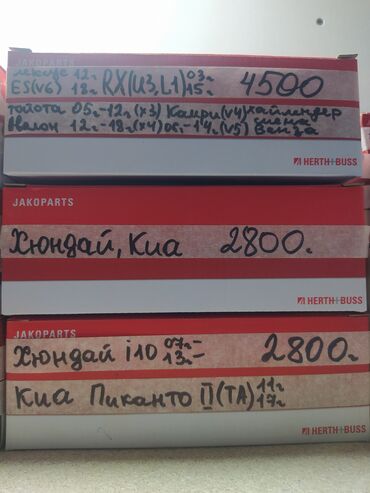 JAKOPARTS
лексус 12г. RX(U3,L1) 03г. 4500
ES(V6) 18г. 15г.
тойота 05г.-12г.(х3) Камри(v4) хайлендер
Авалон 12г.-18г.(х4) 05г.-14г.(v5) сиена Венза
HERTH+BUSS
JAKOPARTS
Хюндай, Киа 2800.
HERTH+BUSS
JAKOPARTS
Хюндай i10 07г- 13г- 2800г
Киа Пиканто II(TA) 11г 17г
HERTH+BUSS